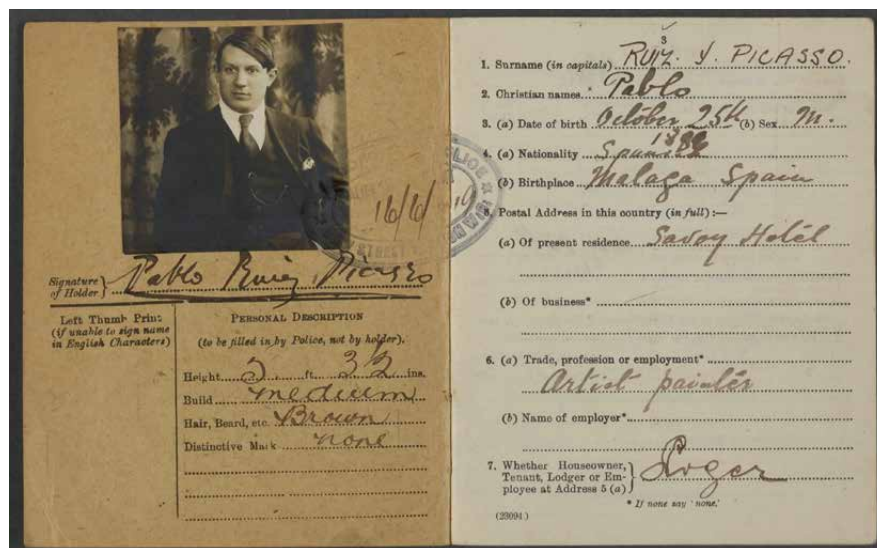 Signature of Holder } Pablo Ruiz Picasso
Left Thumb Print
(if unable to sign name
in English Characters)
PERSONAL DESCRIPTION
(to be filled in by Police, not by holder).
Height 5 ft. 3½ ins.
Build medium
Hair, Beard, etc. Brown
Distinctive Mark none
16/6/19
3
1. Surname (in capitals) RUIZ. Y. PICASSO.
2. Christian names.* Pablo
3. (a) Date of birth October 25th (b) Sex M.
4. (a) Nationality Spanish
(b) Birthplace Malaga Spain
5. Postal Address in this country (in full):—
(a) Of present residence Savoy Hotel
(b) Of business*
6. (a) Trade, profession or employment*
Artist painter
(b) Name of employer*
7. Whether Houseowner,
Tenant, Lodger or Em-
ployee at Address 5 (a) }
* If none say 'none.'
(23094.)